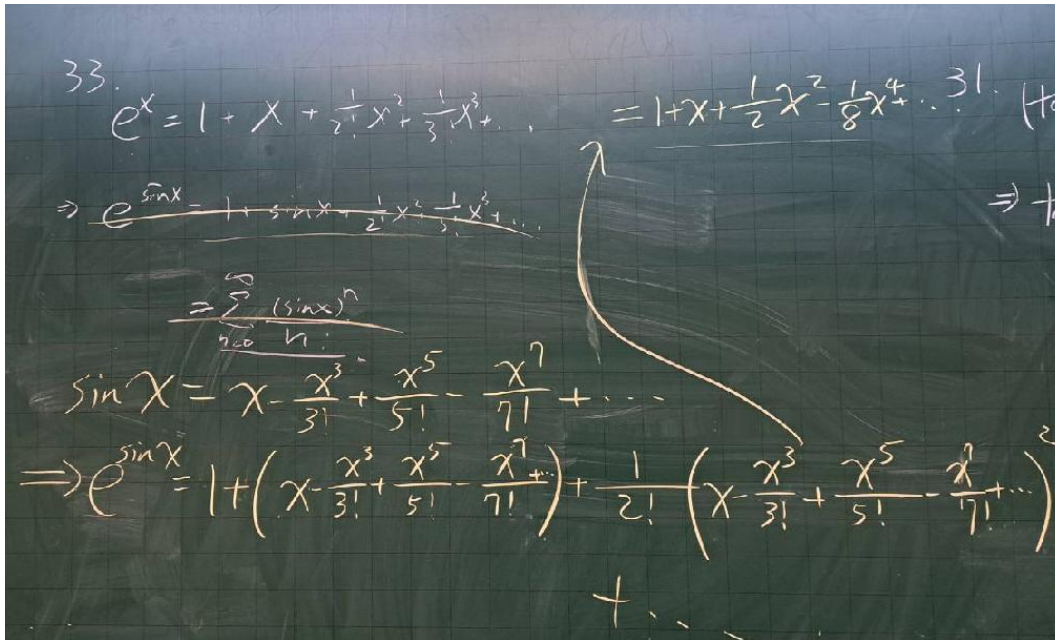 33.
e^x = 1 + x + \frac{1}{2!}x^2 + \frac{1}{3!}x^3 + ...
⇒ e^{sin x} = 1 + sin x + \frac{1}{2!}x^2 + \frac{1}{3!}x^3 + ...
= \sum_{n=0}^{∞} \frac{(sin x)^n}{n!}
sin x = x - \frac{x^3}{3!} + \frac{x^5}{5!} - \frac{x^7}{7!} + ....
⇒ e^{sin x} = 1 + (x - \frac{x^3}{3!} + \frac{x^5}{5!} - \frac{x^7}{7!} + ...) + \frac{1}{2!}(x - \frac{x^3}{3!} + \frac{x^5}{5!} - \frac{x^7}{7!} + ...)^2
+ ...
= 1 + x + \frac{1}{2}x^2 - \frac{1}{8}x^4 + ...
31.
⇒